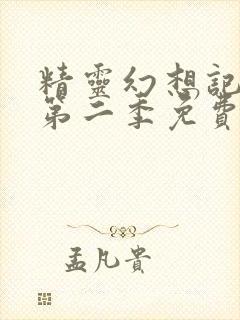 精靈幻想記
第二季免費
孟凡貴